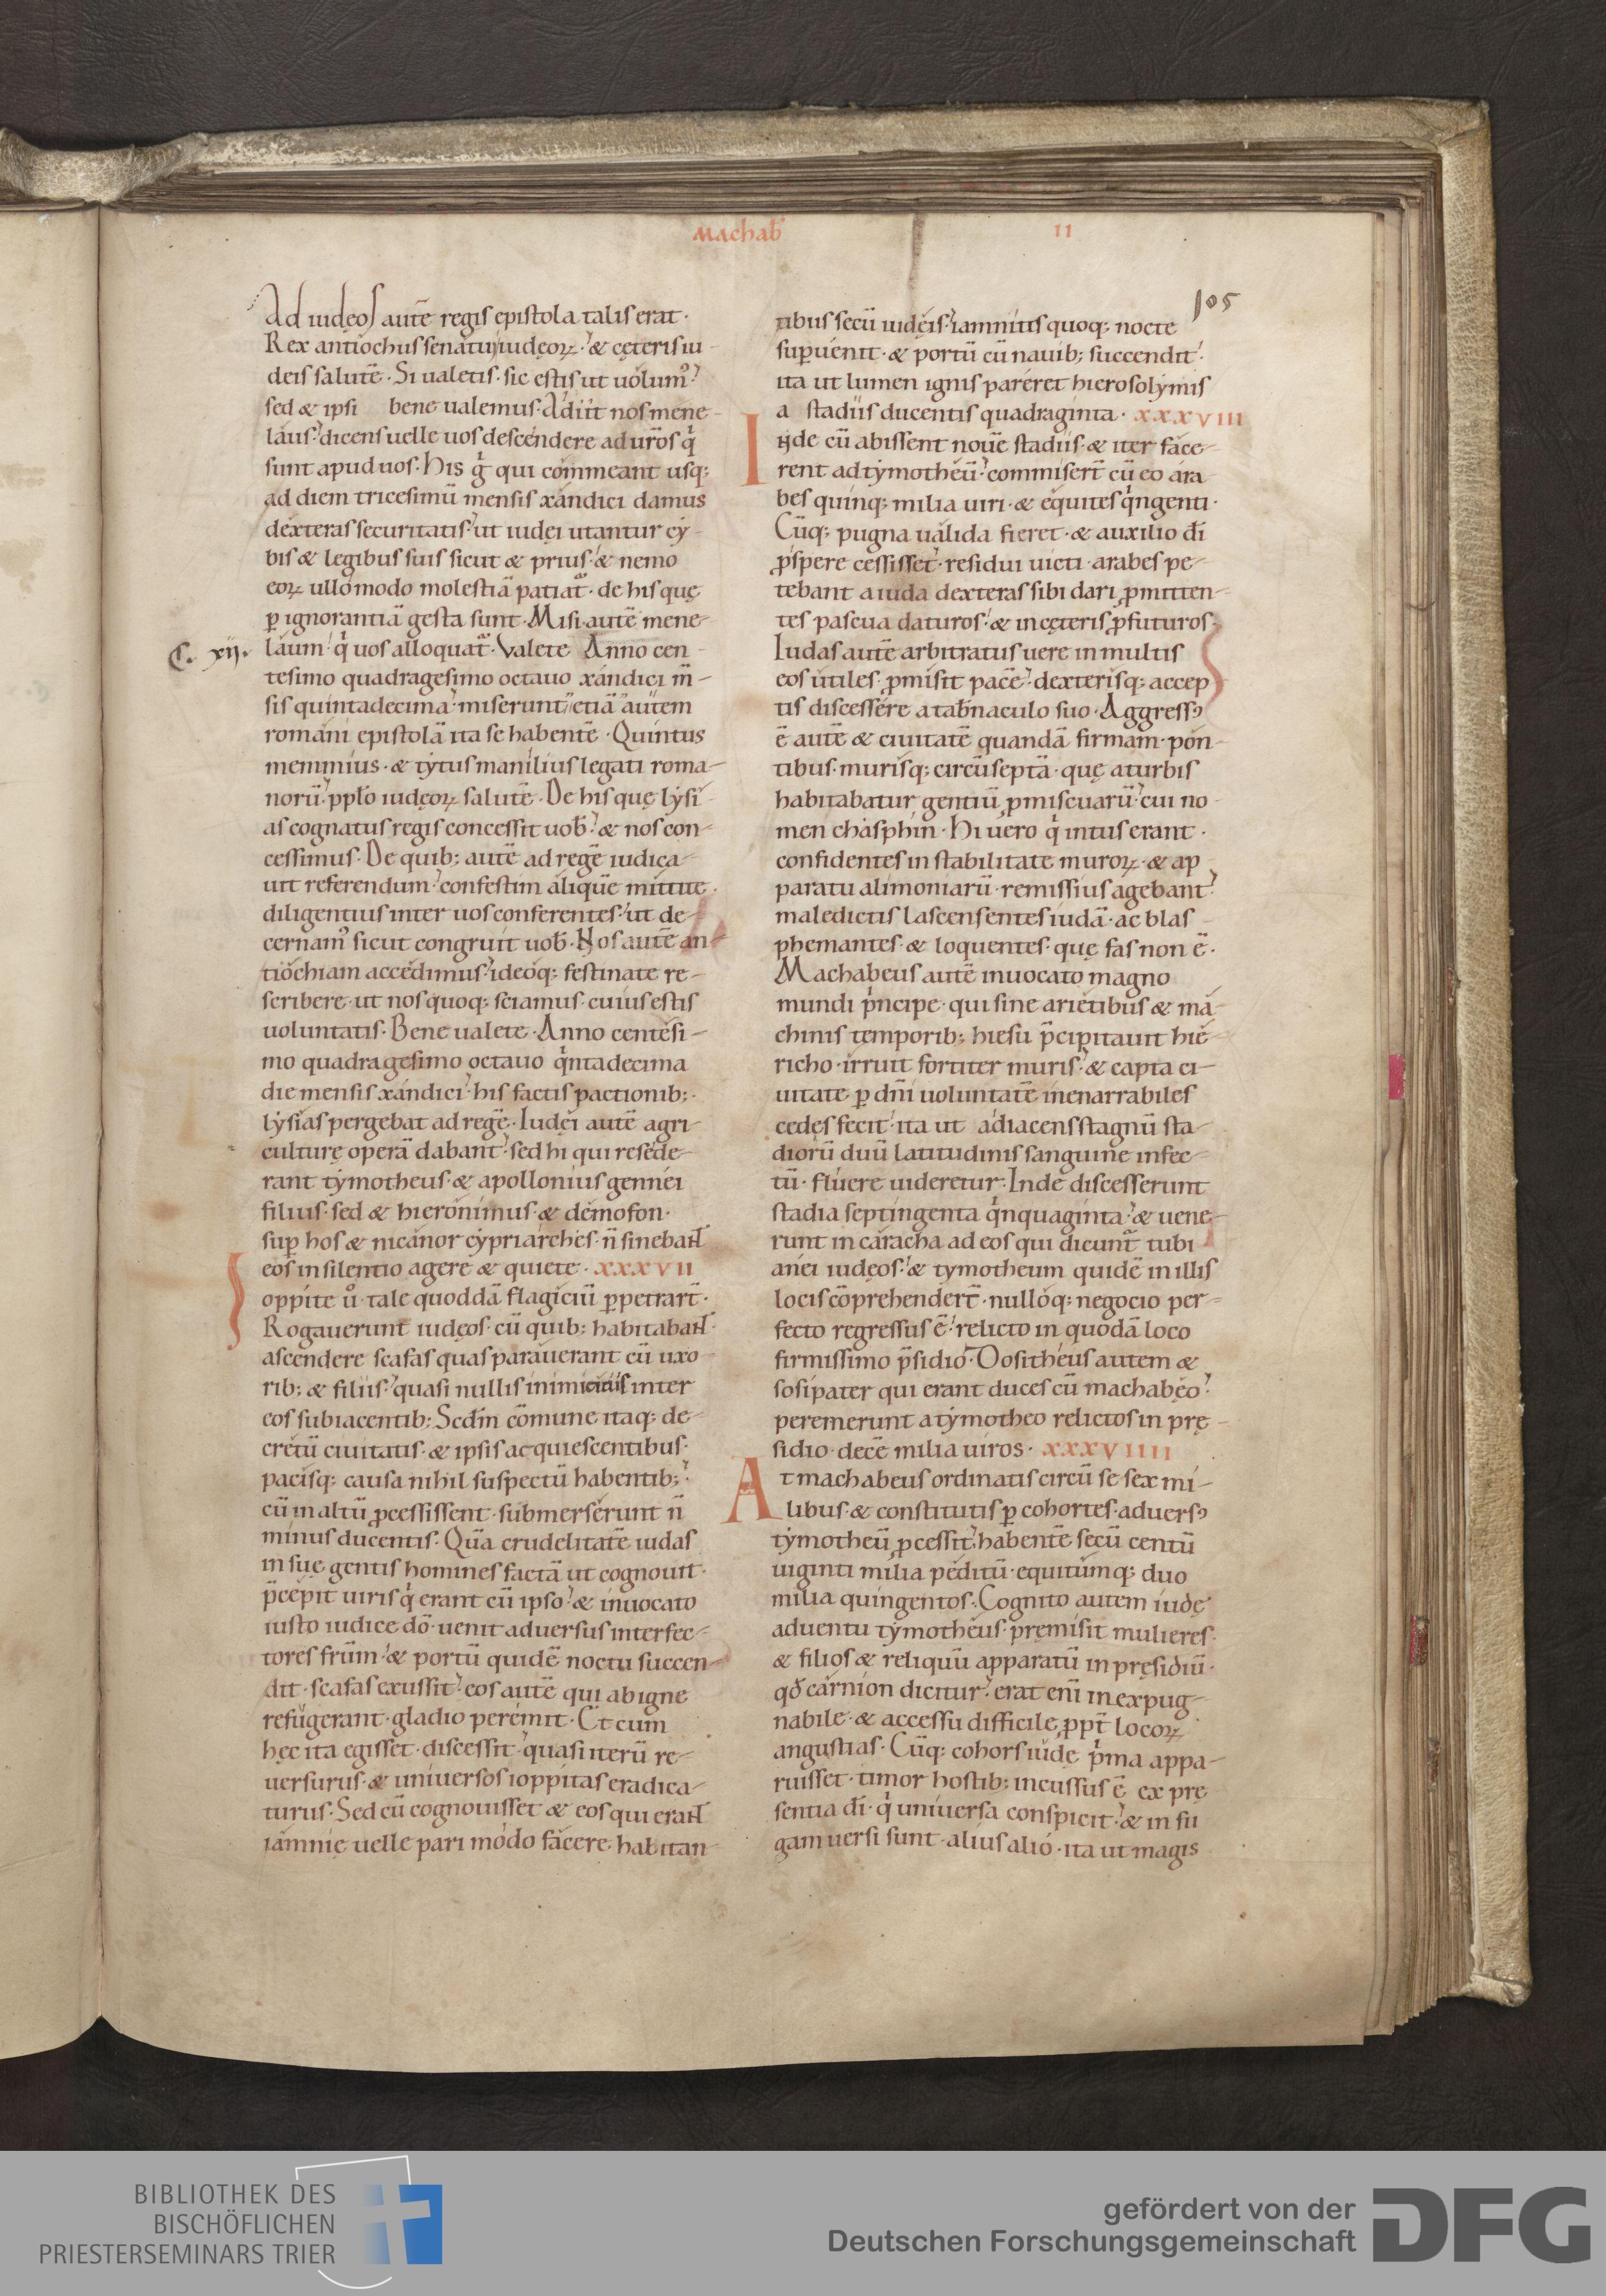 Machab̄ II
105
Ad iudęos autē regis epistola talis erat·
Rex antiochus senatui iudęoꝝ· & cęteris iu-
deis salutē· Si ualetis· sic estis ut uolum᷒·
sed & ipsi bene ualemus· Adiit nos mene-
laus· dicens uelle uos descendere ad ur̄os qͥ
sunt apud uos· His gͥ qui commeant usq;
ad diem tricesimū mensis xandici damus
dexteras securitatis· ut iudęi utantur cy-
bis & legibus suis sicut & prius· & nemo
eoꝝ ullo modo molestiā patiat᷑· de his quę
ꝑ ignorantiā gesta sunt· Misi autē mene-
C. xij. laum· qͥ uos alloquat᷑· Valete Anno cen-
tesimo quadragesimo octauo xandici m̄-
sis quintadecima· miserunt etiā autem
romani epistolā ita se habentē· Quintus
memmius· & tytus manilius legati roma-
norū· pplo iudęoꝝ salutē· De his quę lysi-
as cognatus regis concessit uob̄· & nos con-
cessimus· De quib; autē ad regē iudica-
uit referendum· confestim aliquē mittite·
diligentius inter uos conferentes· ut de-
cernam᷒ sicut congruit uob̄· Nos autē an-
tiochiam accedimus· ideoq; festinate re-
scribere· ut nos quoq; sciamus· cuius estis
uoluntatis· Bene ualete· Anno centesi-
mo quadragesimo octauo qͥntadecima
die mensis xandici· his factis pactionib;·
lysias pergebat ad regē· Iudęi autē agri-
culturę operā dabant· sed hi qui resede-
rant tymotheus· & apollonius gennei
filius· sed & hieronimus· & demofon·
suꝑ hos & nicanor cypriarches· n̄ sinebant
eos in silentio agere & quiete· XXXVII
Ioppite ū· tale quoddā flagiciū ꝑpetrart̄·
Rogauerunt iudęos· cū quib; habitabant·
ascendere scafas quas parauerant cū uxo-
rib; & filiis· quasi nullis inimicitiis inter
eos subiacentib; Sedīn cōmune itaq; de-
cretū ciuitatis· & ipsis acquiescentibus·
pacisq; causa nihil suspectū habentib;·
cū in altū ꝓcessissent· submerserunt n̄
minus ducentis· Quā crudelitatē iudas
in suę gentis homines factā ut cognouit·
p̄cepit uiris qͥ erant cū ipso· & inuocato
iusto iudice dō· uenit aduersus interfec-
tores frūm· & portū quidē noctu succen-
dit· scafas exussit· eos autē qui ab igne
refugerant· gladio peremit· Et cum
hęc ita egisset· discessit· quasi iterū re-
uersurus· & uniuersos ioppitas eradica-
turus· Sed cū cognouisset & eos qui erant
iamnię uelle pari modo facere habitan-
tibus secū iudęis· iamnitis quoq; nocte
suꝑuenit· & portū cū nauib; succendit·
ita ut lumen ignis pareret hierosolymis
a stadiis ducentis quadraginta· XXXVIII
Inde cū abissent nouē stadiis· & iter face-
rent ad tymotheū· commisert̄ cū eo ara-
bes quinq; milia uiri· & equites qͥngenti·
Cūq; pugna ualida fieret· & auxilio dī
ꝓspere cessisset· residui uicti· arabes pe-
tebant a iuda dexteras sibi dari ꝓmitten-
tes pascua daturos· & in cęteris ꝓfuturos·
Iudas autē arbitratus uere in multis
eos utiles ꝓmisit pacē· dexterisq; accep
tis discessere a tab̄naculo suo· Aggress᷒
ē autē & ciuitatē quandā firmam· pon-
tibus· murisq; circūseptā· quę a turbis
habitabatur gentiū ꝓmiscuarū· cui no-
men chasphin· Hi uero qͥ intus erant·
confidentes in stabilitate muroꝝ· & ap
paratu alimoniarū· remissius agebant·
maledictis lascensentes iudā· ac blas-
phemantes· & loquentes· quę fas non ē·
Machabeus autē inuocato magno
mundi pͥncipe· qui sine arietibus & ma-
chinis temporib; hiesu p̄cipitauit hie-
richo· irruit fortiter muris· & capta ci-
uitate ꝑ dn̄i uoluntatē inenarrabiles
cedes fecit· ita ut adiacens stagnū sta-
diorū duū latitudinis sanguine infec-
tū· fluere uideretur· Inde discesserunt
stadia septingenta qͥnquaginta· & uene-
runt in caracha ad eos qui dicunt᷑ tubi
anei iudęos· & tymotheum quidē in illis
locis cōprehendert̄· nulloq; negocio per-
fecto regressus ē· relicto in quodā loco
firmissimo p̄sidio· Dositheus autem &
sosipater qui erant duces cū machabęo·
peremerunt a tymotheo relictos in prę-
sidio· decē milia uiros· XXXVIIII
At machabeus ordinatis circū se sex mi-
libus· & constitutis ꝑ cohortes· aduers᷒
tymotheū ꝓcessit· habentē secū centū
uiginti milia peditū· equitumq; duo
milia quingentos· Cognito autem iudę
aduentu tymotheus· pręmisit mulieres·
& filios & reliquū apparatū in pręsidiū·
qđ carnion dicitur· erat enī inexpug-
nabile· & accessu difficile ꝓpt̄ locoꝝ
angustias· Cūq; cohors iudę pͥma appa-
ruisset· timor hostib; incussus ē ex prę
sentia dī· qͥ uniuersa conspicit· & in fu
gam uersi sunt· alius alio· ita ut magis
BIBLIOTHEK DES
BISCHÖFLICHEN
PRIESTERSEMINARS TRIER
gefördert von der
Deutschen Forschungsgemeinschaft
DFG